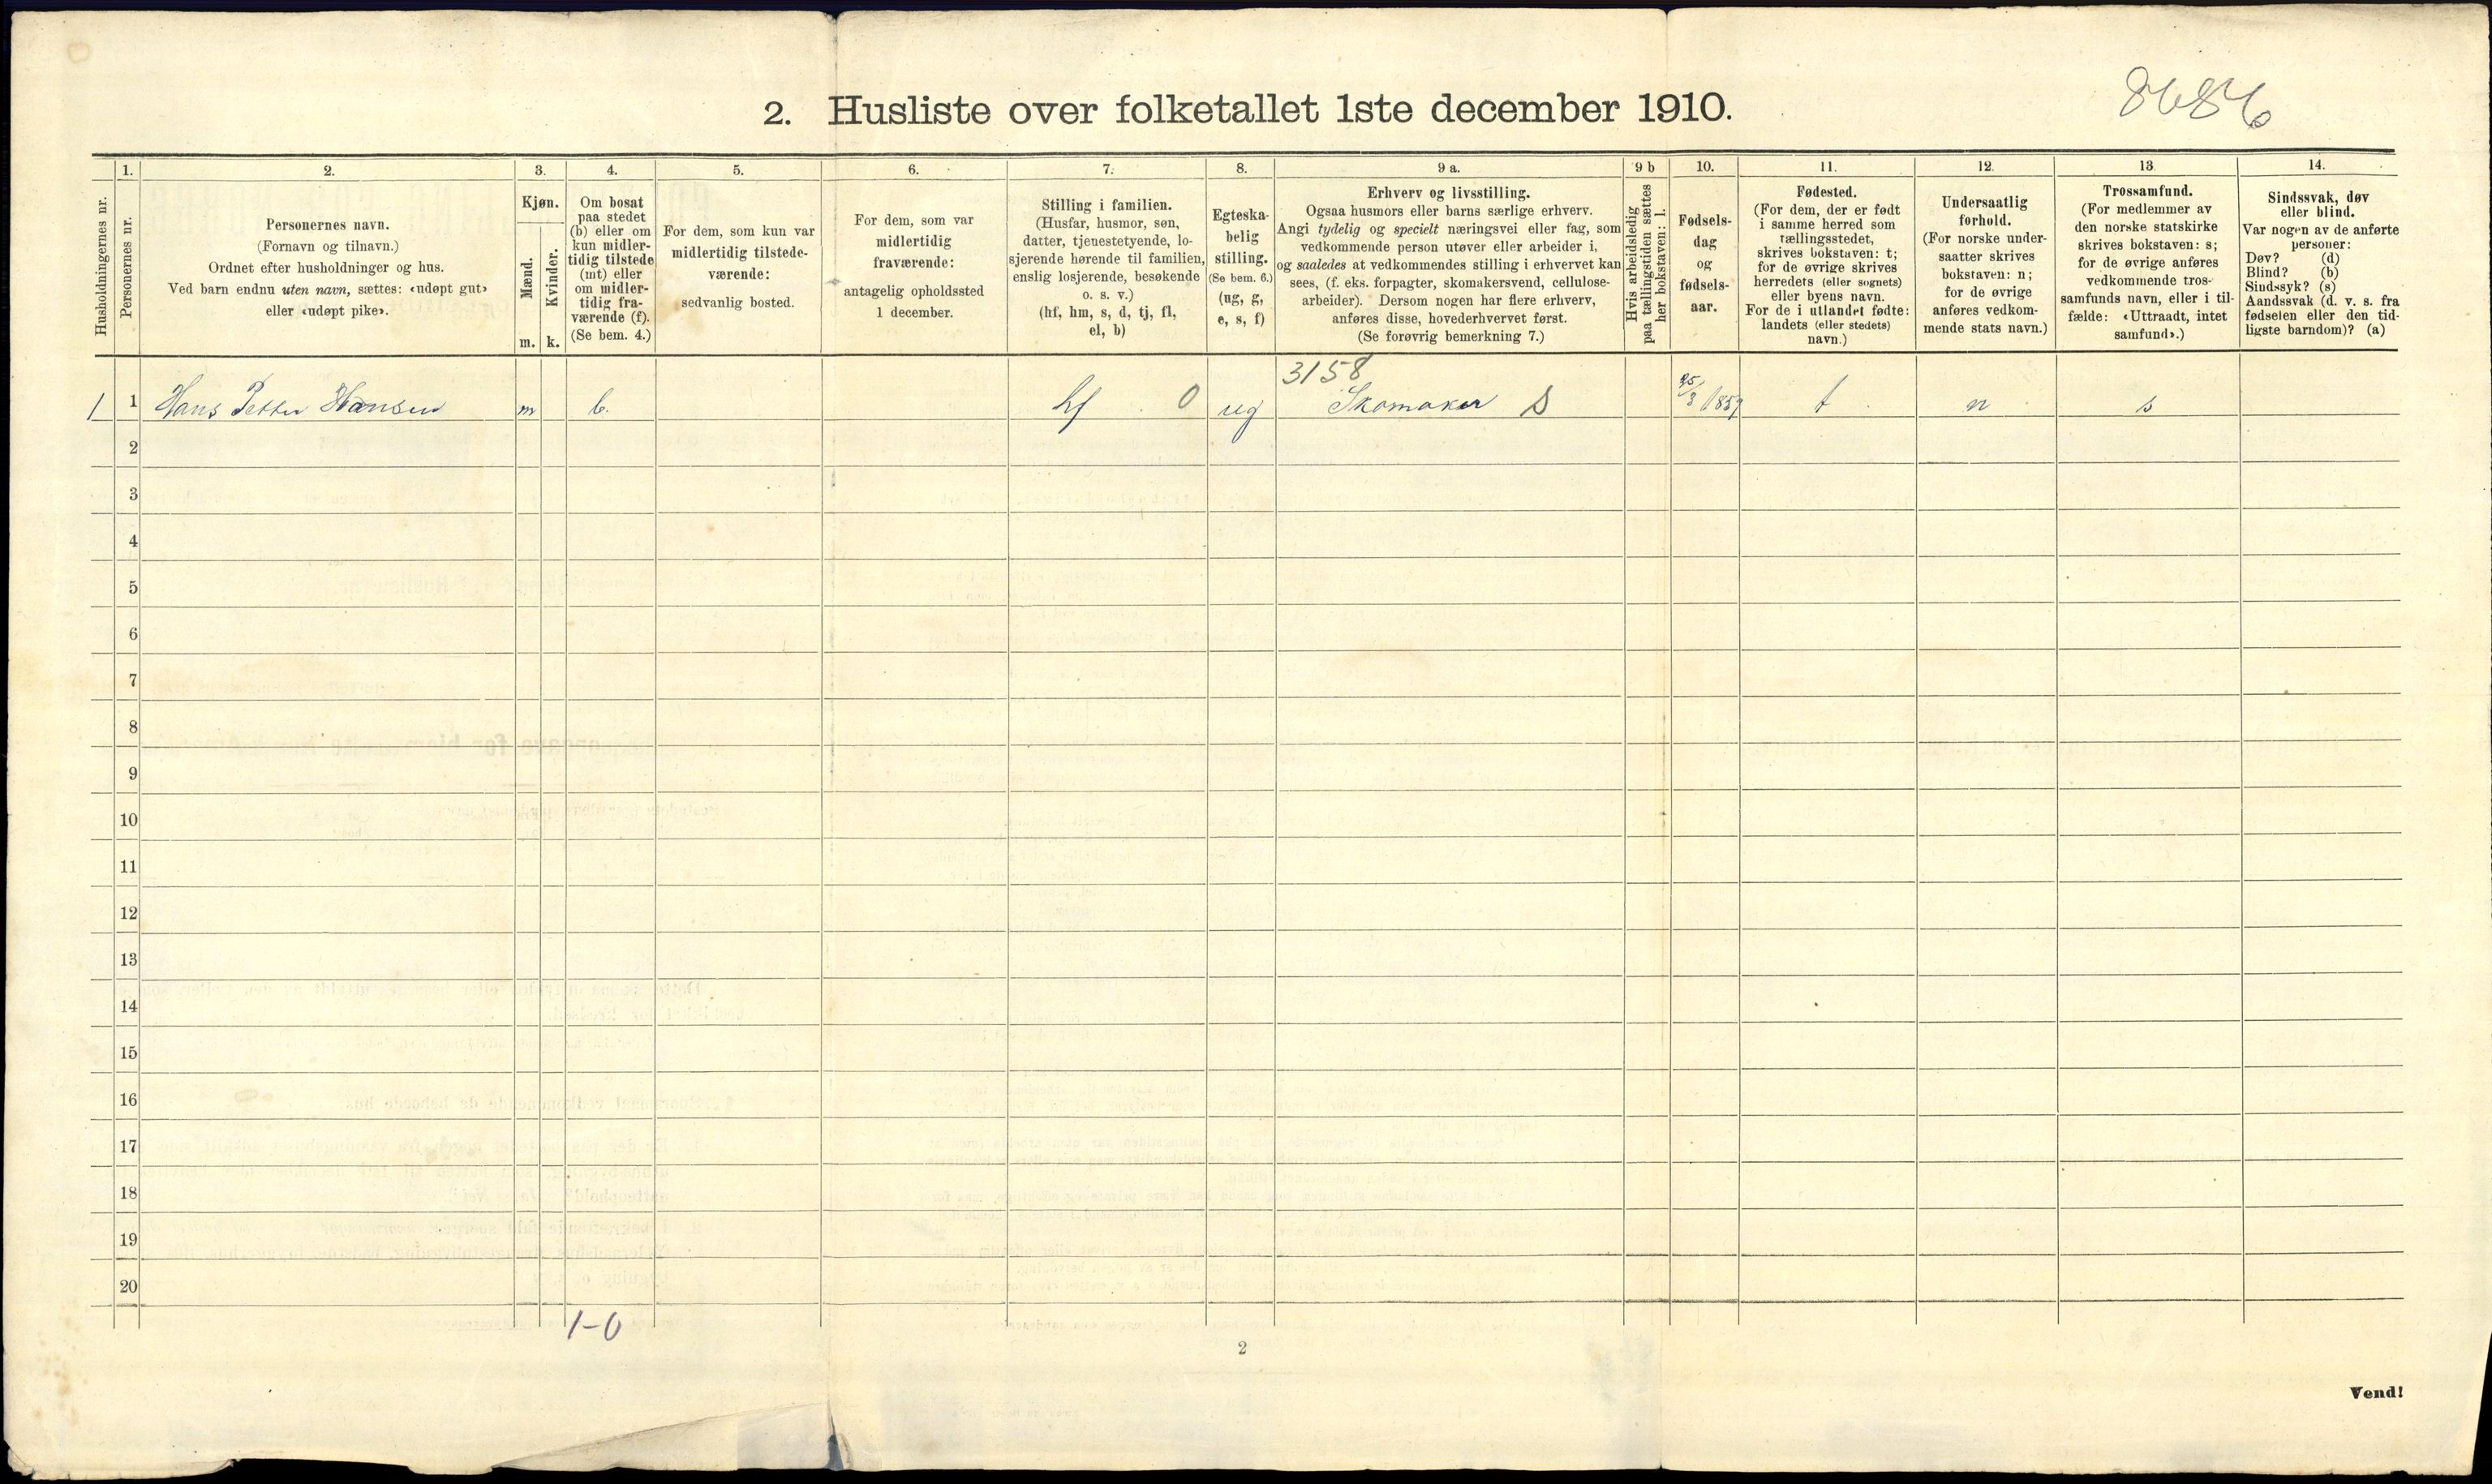 8686
2. Husliste over folketallet 1ste december 1910.
Husholdningernes nr.
1.
Personernes nr.
2.
Personernes navn.
(Fornavn og tilnavn.)
Ordnet efter husholdninger og hus.
Ved barn endnu uten navn, sættes: «udøpt gut»
eller «udøpt pike».
3.
Kjøn.
Mænd.
m.
Kvinder.
k.
4.
Om bosat
paa stedet
(b) eller om
kun midler-
tidig tilstede
(mt) eller
om midler-
tidig fra-
værende (f).
(Se bem. 4.)
5.
For dem, som kun var
midlertidig tilstede-
værende:
sedvanlig bosted.
6.
For dem, som var
midlertidig
fraværende:
antagelig opholdssted
1 december.
7.
Stilling i familien.
(Husfar, husmor, søn,
datter, tjenestetyende, lo-
sjerende hørende til familien,
enslig losjerende, besøkende
o. s. v.)
(hf, hm, s, d, tj, fl,
el, b)
8.
Egteska-
belig
stilling.
(Se bem. 6.)
(ug, g,
e, s, f)
9 a.
Erhverv og livsstilling.
Ogsaa husmors eller barns særlige erhverv.
Angi tydelig og specielt næringsvei eller fag, som
vedkommende person utøver eller arbeider i,
og saaledes at vedkommendes stilling i erhvervet kan
sees, (f. eks. forpagter, skomakersvend, cellulose-
arbeider). Dersom nogen har flere erhverv,
anføres disse, hovederhvervet først.
(Se forøvrig bemerkning 7.)
9 b
Hvis arbeidsledig
paa tællingstiden sættes
her bokstaven: l.
10.
Fødsels-
dag
og
fødsels-
aar.
11.
Fødested.
(For dem, der er født
i samme herred som
tællingsstedet,
skrives bokstaven: t;
for de øvrige skrives
herredets (eller sognets)
eller byens navn.
For de i utlandet fødte:
landets (eller stedets)
navn.)
12.
Undersaatlig
forhold.
(For norske under-
saatter skrives
bokstaven: n;
for de øvrige
anføres vedkom-
mende stats navn.)
13
Trossamfund.
(For medlemmer av
den norske statskirke
skrives bokstaven: s;
for de øvrige anføres
vedkommende tros-
samfunds navn, eller i til-
fælde: «Uttraadt, intet
samfund».)
14.
Sindssvak, døv
eller blind.
Var nogen av de anførte
personer:
Døv? (d)
Blind? (b)
Sindssyk? (s)
Aandssvak (d. v. s. fra
fødselen eller den tid-
ligste barndom)? (a)
3158
1 1 Hans Petter Hansen m b. hf 0 ug Skomaker S 25/3 1859 t n s
2
3
4
5
6
7
8
9
10
11
12
13
14
15
16
17
18
19
20
1-0
2
Vend!